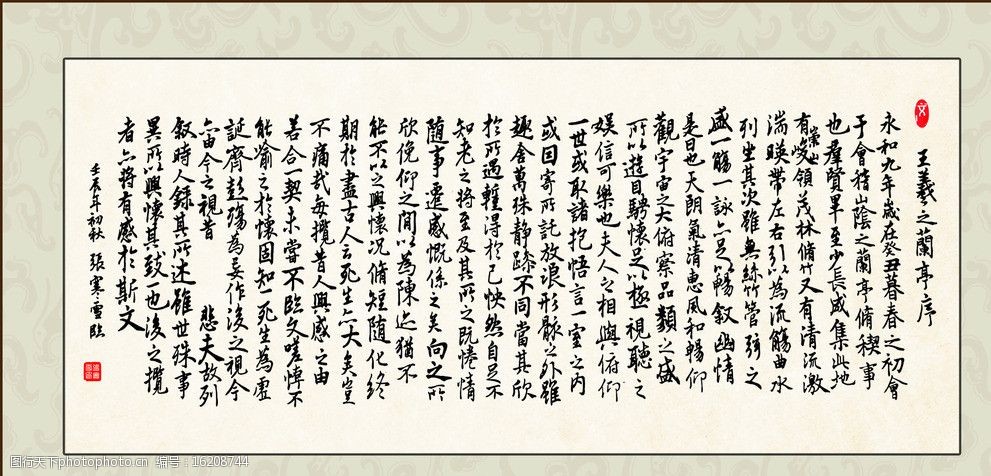 王羲之蘭亭序
永和九年歲在癸丑暮春之初會
于會稽山陰之蘭亭脩稧事
也羣賢畢至少長咸集此地
有崇山峻領茂林脩竹又有清流激
湍暎帶左右引以為流觴曲水
列坐其次雖無絲竹管弦之
盛一觴一詠亦足以暢敘幽情
是日也天朗氣清惠風和暢仰
觀宇宙之大俯察品類之盛
所以遊目騁懷足以極視聽之
娛信可樂也夫人之相與俯仰
一世或取諸抱悟言一室之內
或因寄所託放浪形骸之外雖
趣舍萬殊静躁不同當其欣
於所遇蹔得於己怏然自足不
知老之將至及其所之既惓情
隨事遷感慨係之矣向之所
欣俛仰之間以為陳迹猶不
能不以之興懷况脩短隨化終
期於盡古人云死生亦大矣豈
不痛哉每攬昔人興感之由
若合一契未嘗不臨文嗟悼不
能喻之於懷固知一死生為虛
誕齊彭殤為妄作後之視今
亦由今之視昔 悲夫故列
敘時人錄其所述雖世殊事
異所以興懷其致一也後之攬
者亦將有感於斯文
壬辰年初秋 張寒雪臨
文
图行天下photophoto.cn 编号：16208744